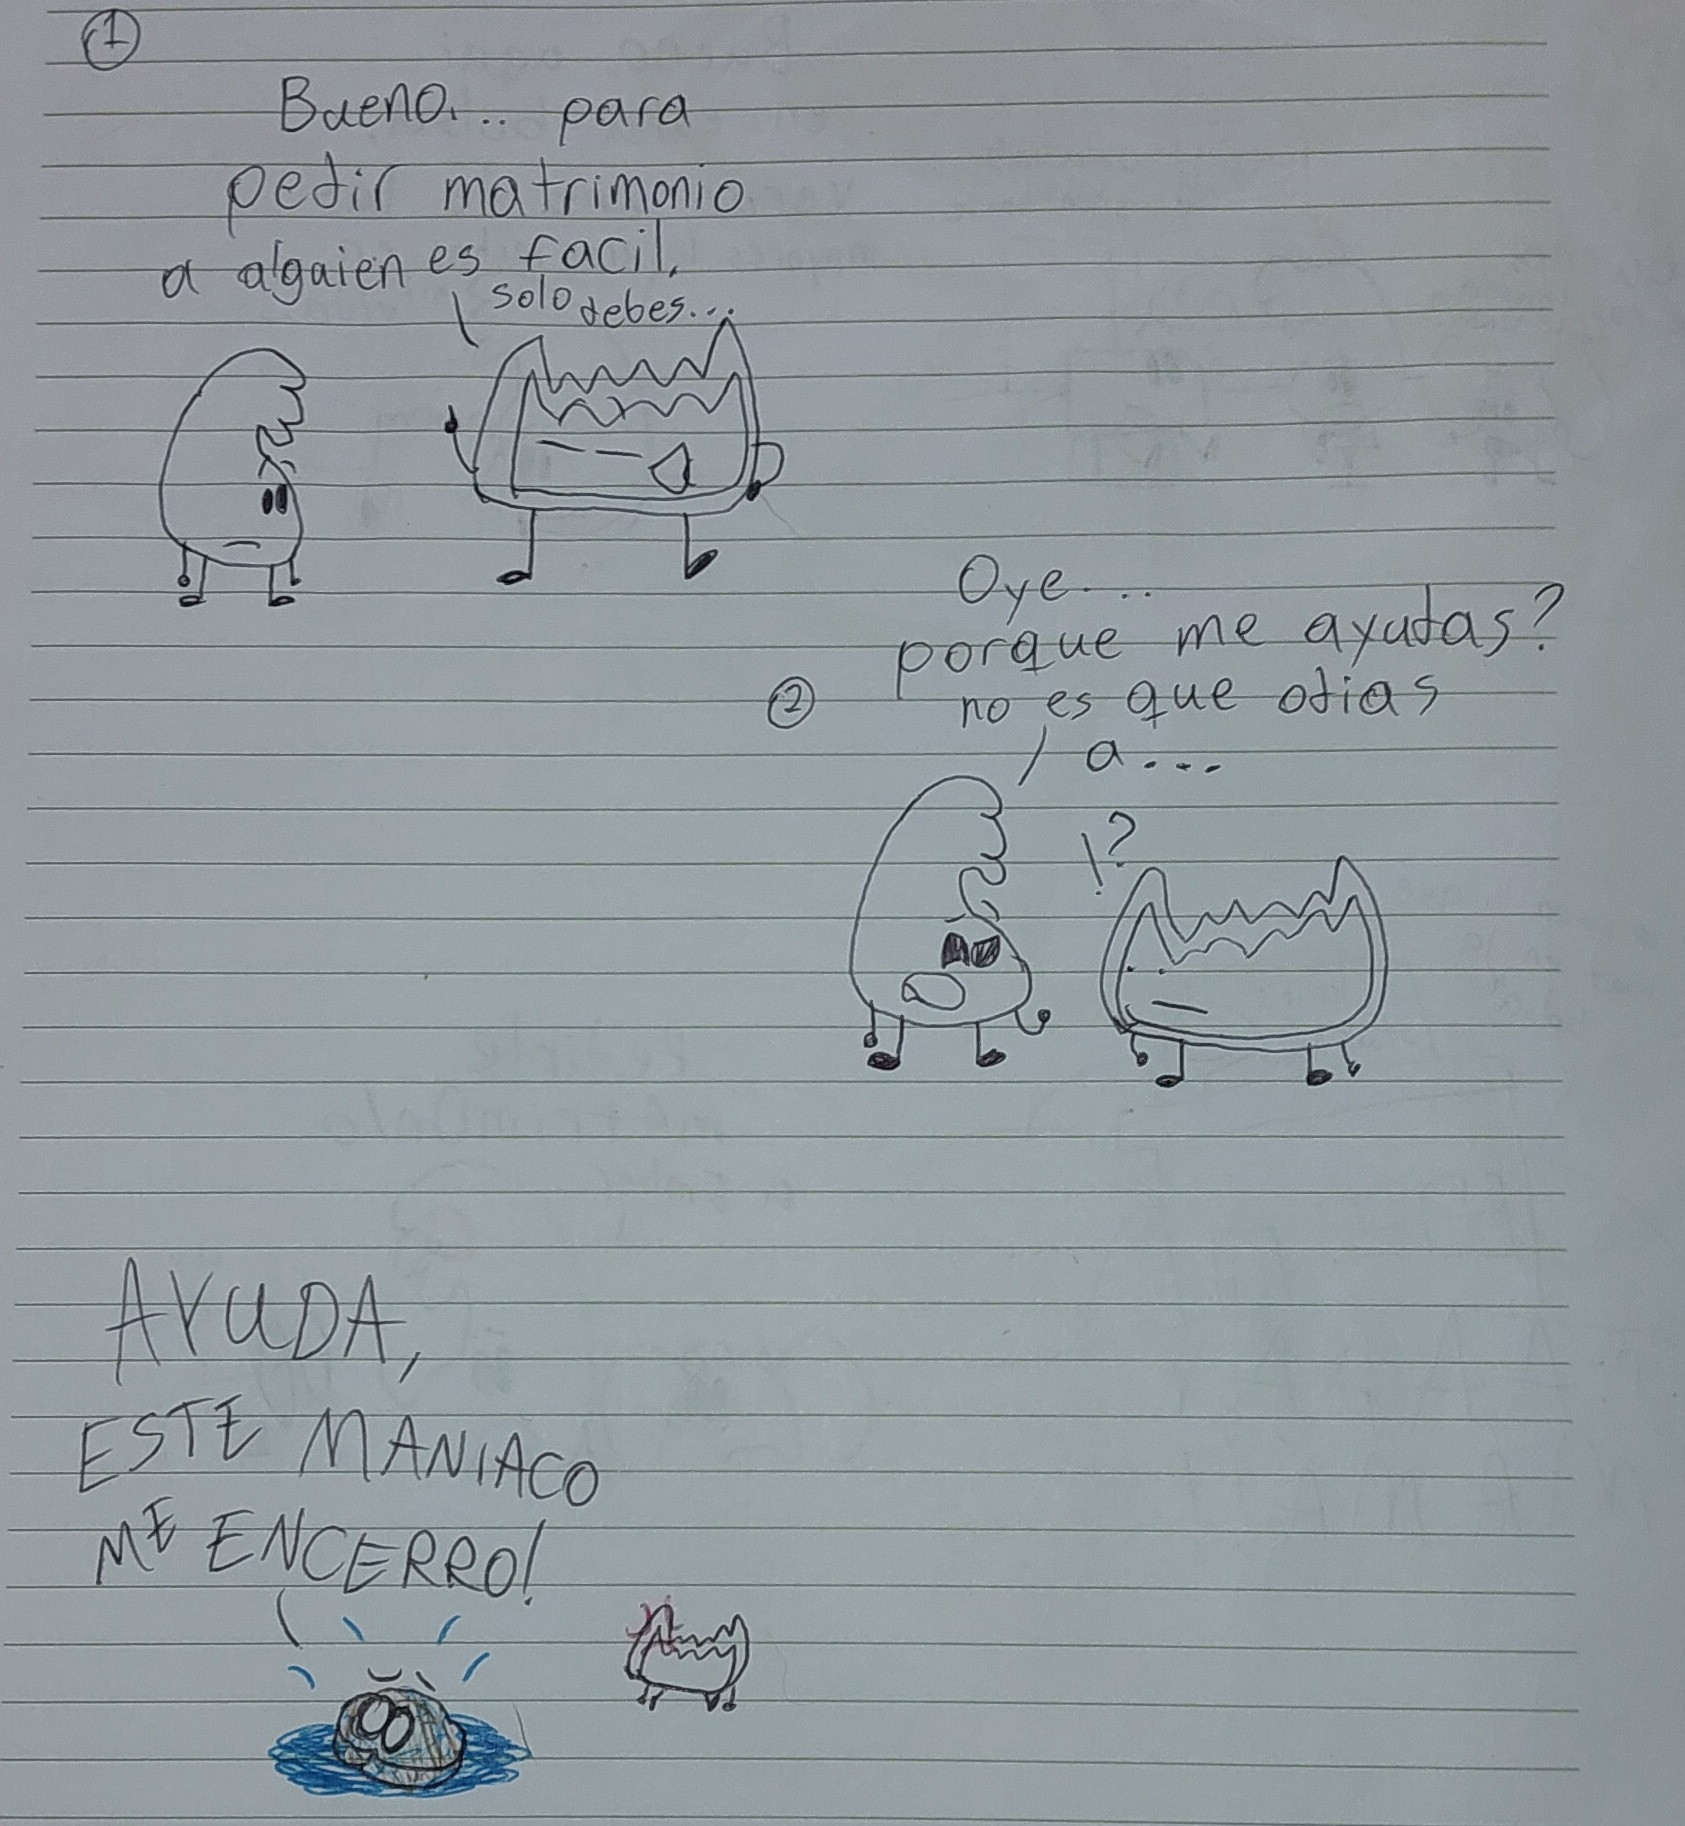 1
Bueno... para
pedir matrimonio
a alguien es facil.
solo debes...
Oye...
porque me ayudas?
2
no es que odias
a...
!?
AYUDA,
ESTE MANIACO
ME ENCERRO!